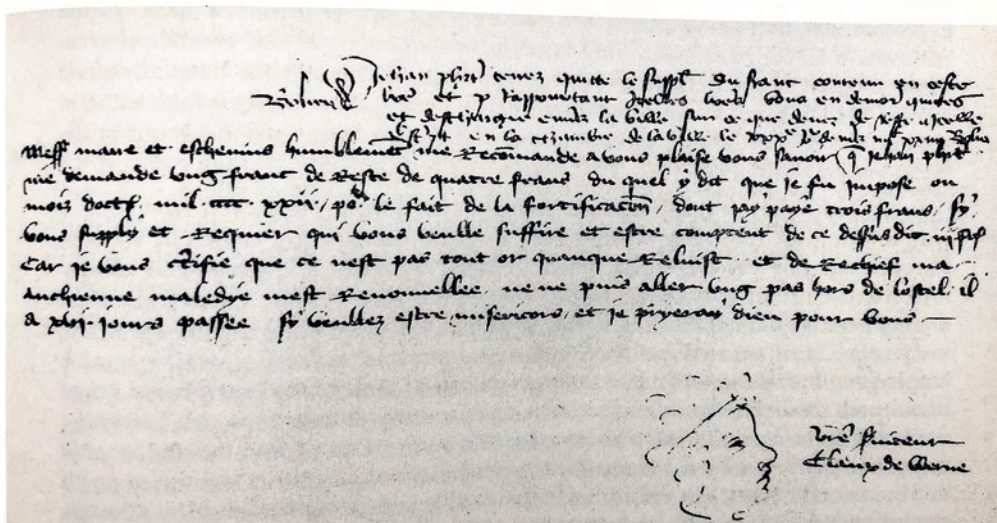 Jehan phot tenez quitte le suppl du franc contenu en ceste
et p rapportant Icelles vous en demor quictes
et deschargie envers la ville sur ce que devez de reste a icelle
en la chambre de la ville le
Mess maire et eschevins humblement me Recomande a vous plaise vous savoir q Jehan phot
me demande ung franc de Reste de quatre frans du quel y dit que je fu impose ou
moiz doctb mil cccc xxii po le fait de la fortificacon dont jay paye trois frans sy
vous supply et Requier qui vous veulle suffire et estre comptent de ce dessusdit iii frs
Car je vous certifie que ce nest pas tout or quanque Reluist et de Rechief ma
anchienne maledye mest Renouvellee ne ne puis aller ung pas hors de lostel il
a xvi jours passee sy veullez estre misericors et je piyeray dieu pour vous
Vre
Claux de Werne